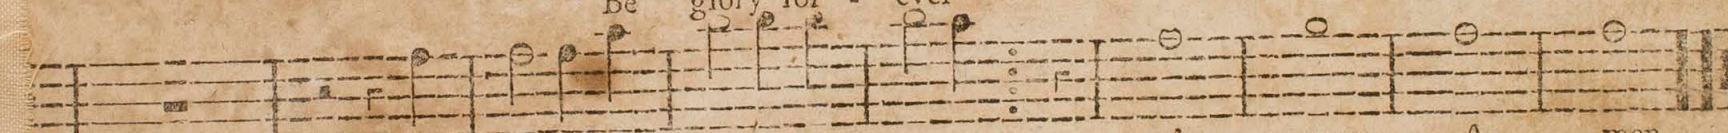 Be glory for - ever
men